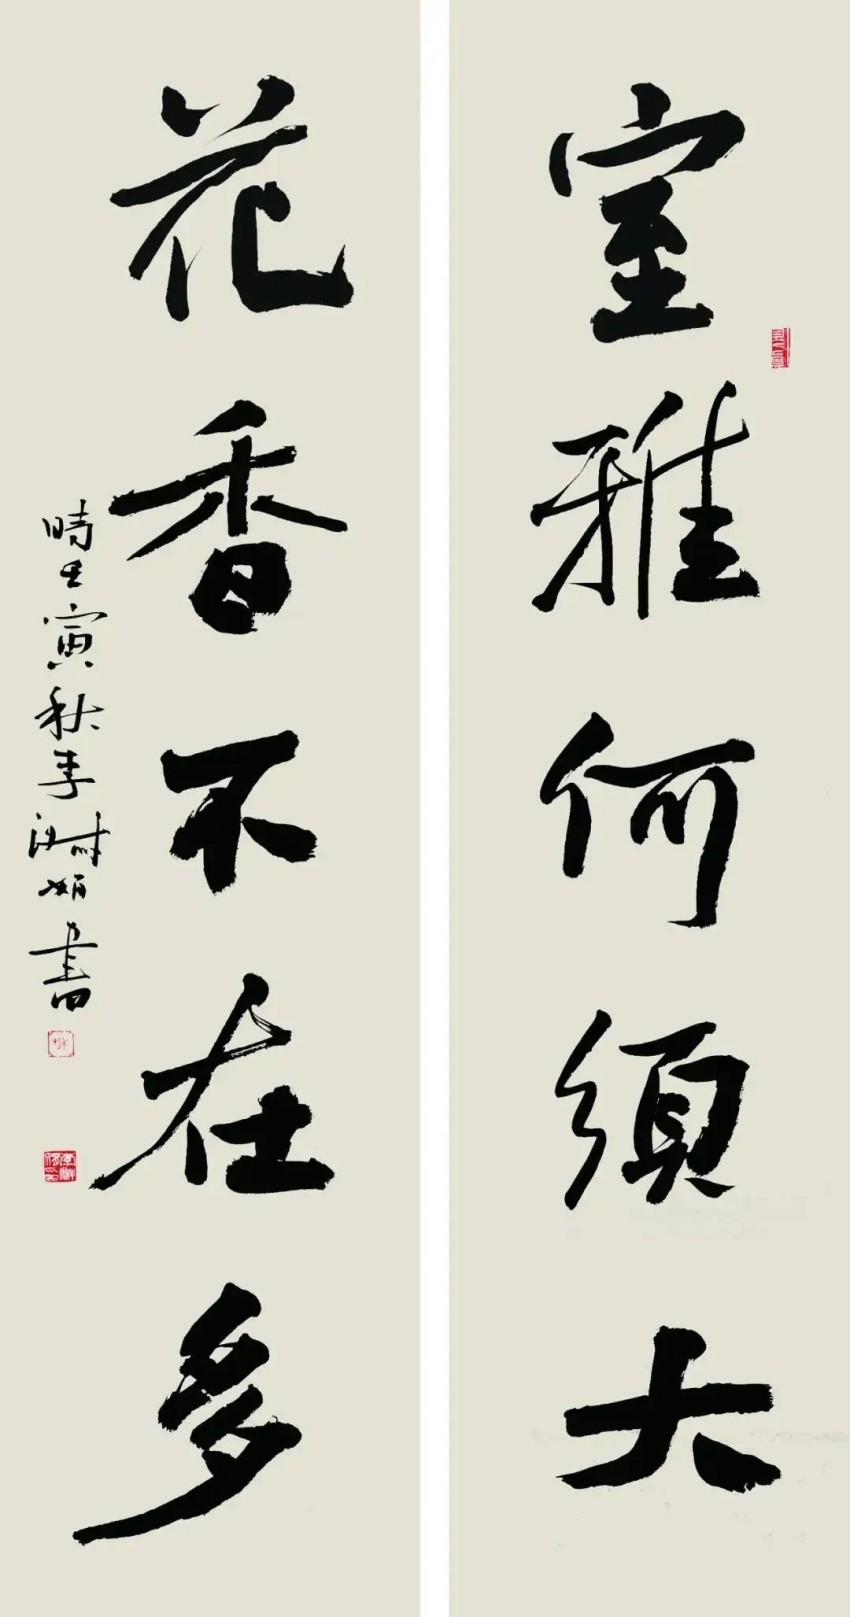 室雅何須大
花香不在多
時壬寅秋李淑娟書